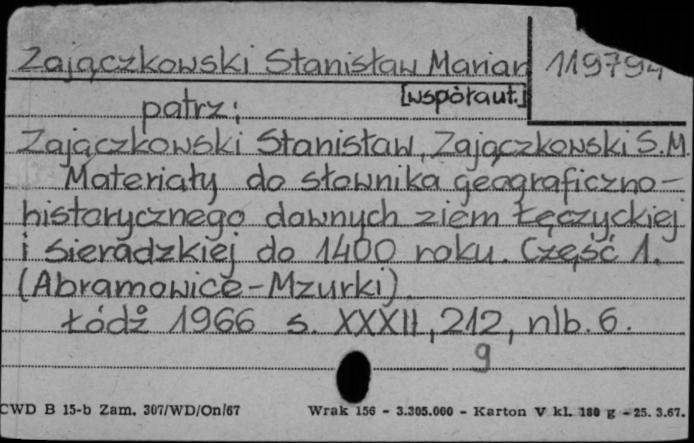 Zajączkowski Stanisław Marian 119794
[współaut.]
patrz:
Zajączkowski Stanisław, Zajączkowski S.M.
Materiały do słownika geograficzno-
historycznego dawnych ziem Łęczyckiej
i Sieradzkiej do 1400 roku. Część 1.
(Abramowice-Mzurki).
Łódź 1966 s. XXXII, 212, nlb. 6.
g
CWD B 15-b Zam. 307/WD/On/67 Wrak 156 - 3.305.000 - Karton V kl. 180 g - 25. 3.67.